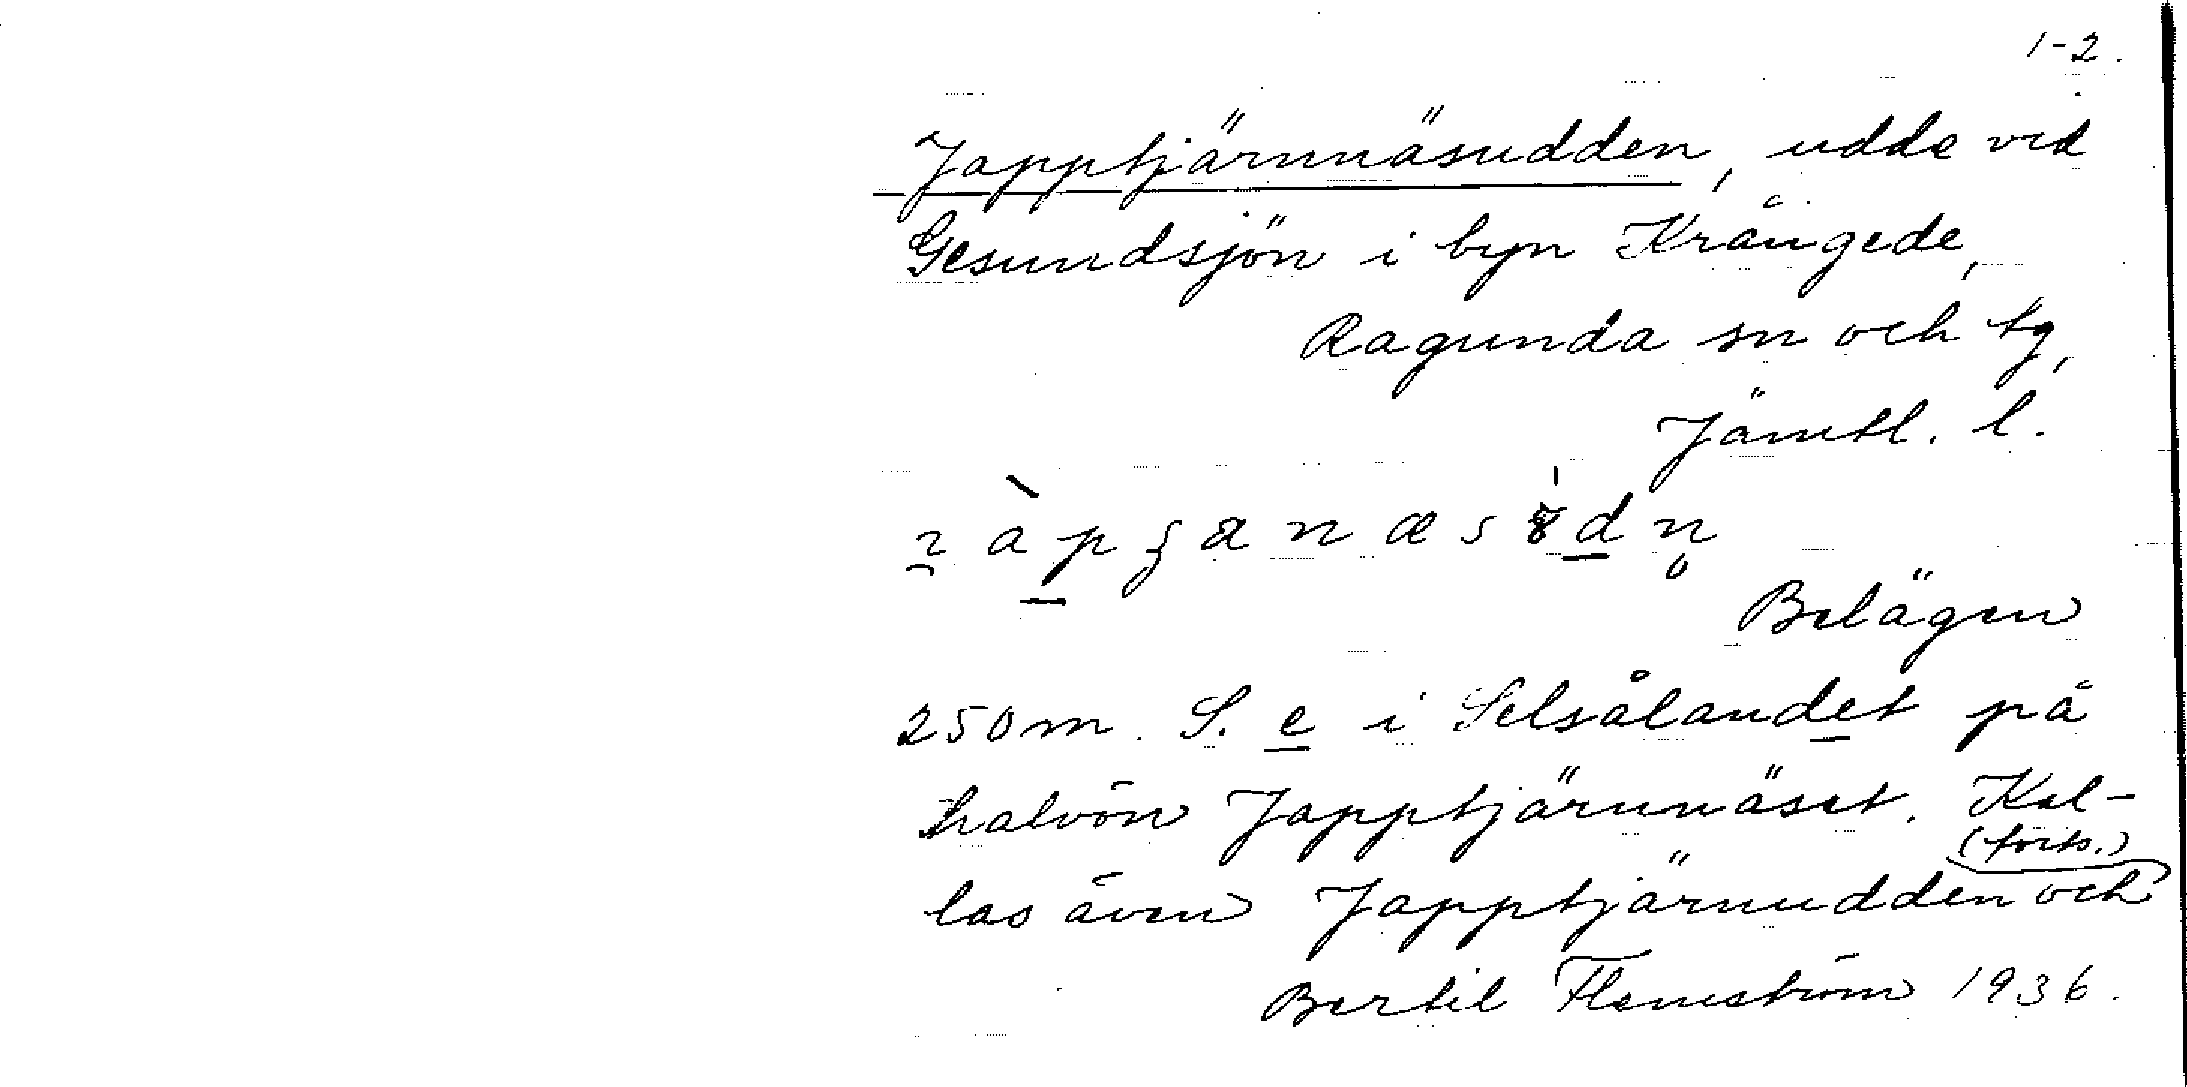 1-2.
Japptjärnnäsudden, udde vid
Gesundsjön i byn Krångede,
Ragunda sn och tg,
Jämtl. l.
Belägen
250 m. S. e i Selsålandet på
halvön Japptjärnnäset. Kal-
(forts.)
las även Japptjärnudden och
Bertil Flemström 1936.